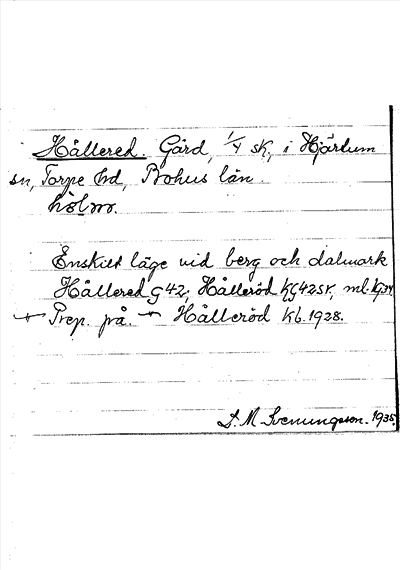 Hållered. Gård, 1/4 sk, i Hjärtum
sn, Torpe hd, Bohus län.
Enskilt läge vid berg och dalmark
Hållered G 42; Hålleröd KG42sk, ml. 1934
Prep. på. Hålleröd Kb. 1928.
S. M. Svenungsson. 1935.